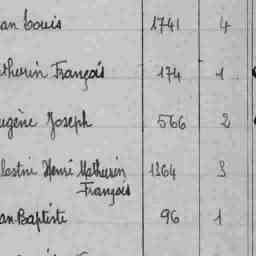 an Louis 1741 4
therin François 174 1
ugène Joseph 566 2
lestin Henri Mathurin 1364 3
François
an Baptiste 96 1